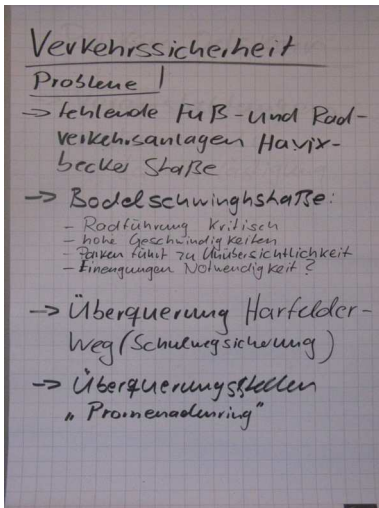 Verkehrssicherheit
Probleme
→ fehlende Fuß- und Rad-
verkehrsanlagen Havix-
becker Staße
→ Bodelschwinghstaße:
- Radführung kritisch
- hohe Geschwindigkeiten
- Parken führt zu Unübersichtlichkeit
- Einengungen Notwendigkeit?
→ Überquerung Harfelder-
weg (Schulwegsicherung)
→ Überquerungsstellen
„Promenadenring"